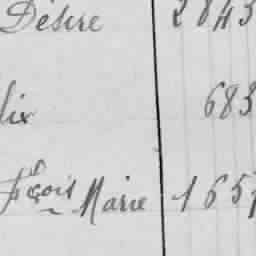 Désire 2843
lix 683
fçois Marie 1651